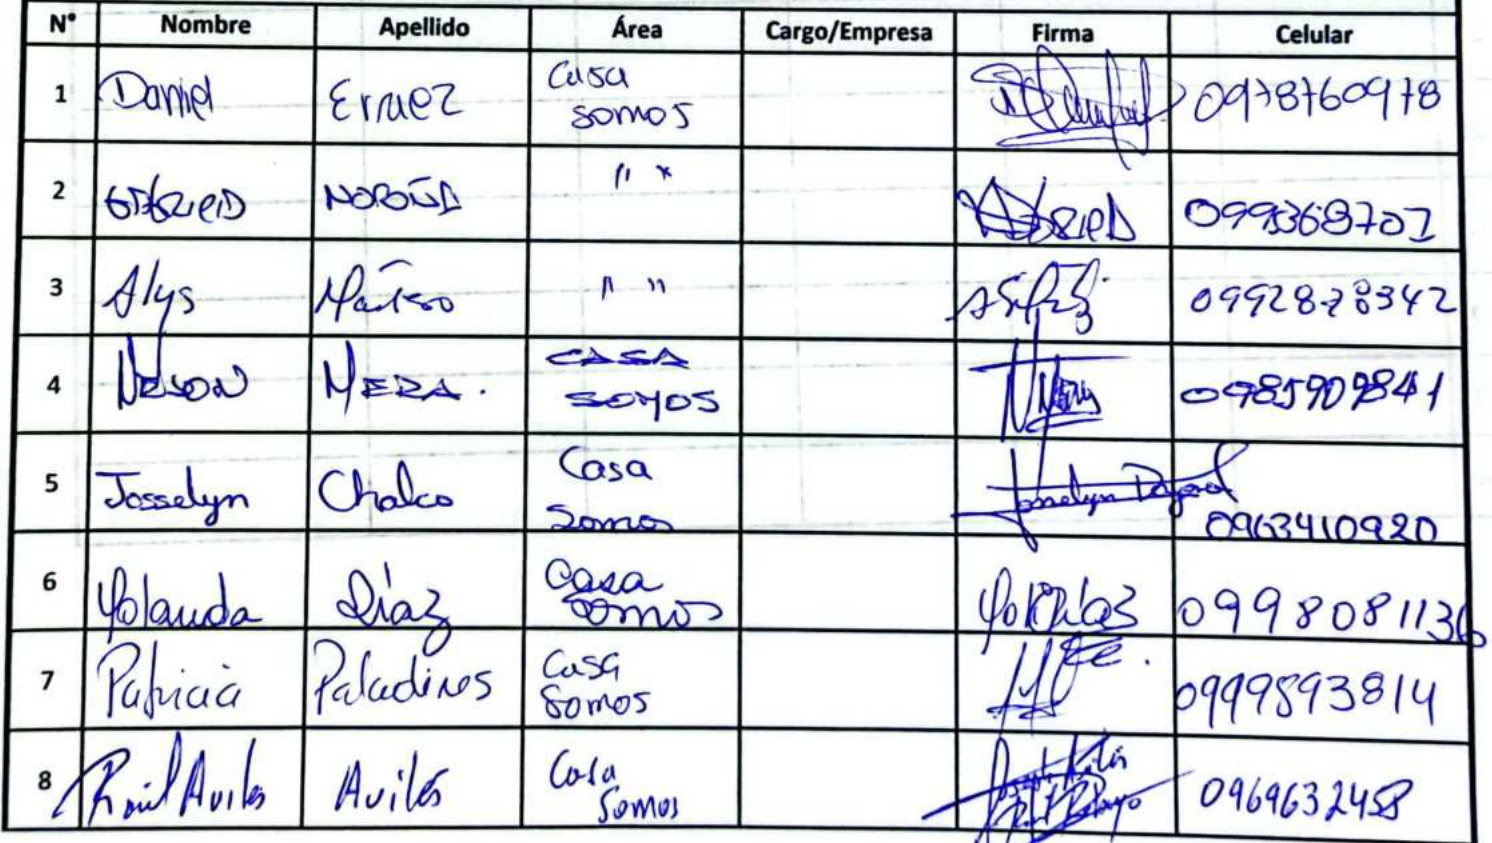 N° Nombre Apellido Área Cargo/Empresa Firma Celular
1 Daniel Erraez Casa somos 0978760978
2 NOBOA " " 099368707
3 Alys " " 0992878342
4 NELSON MERA. CASA SOMOS 0985909841
5 Josselyn Chalco Casa Somos Josselyn 0963410920
6 Yolanda Díaz Casa Somos 0998081136
7 Patricia Paladines Casa Somos 0999593814
8 Raúl Aviles Avilés Casa Somos 0969632458